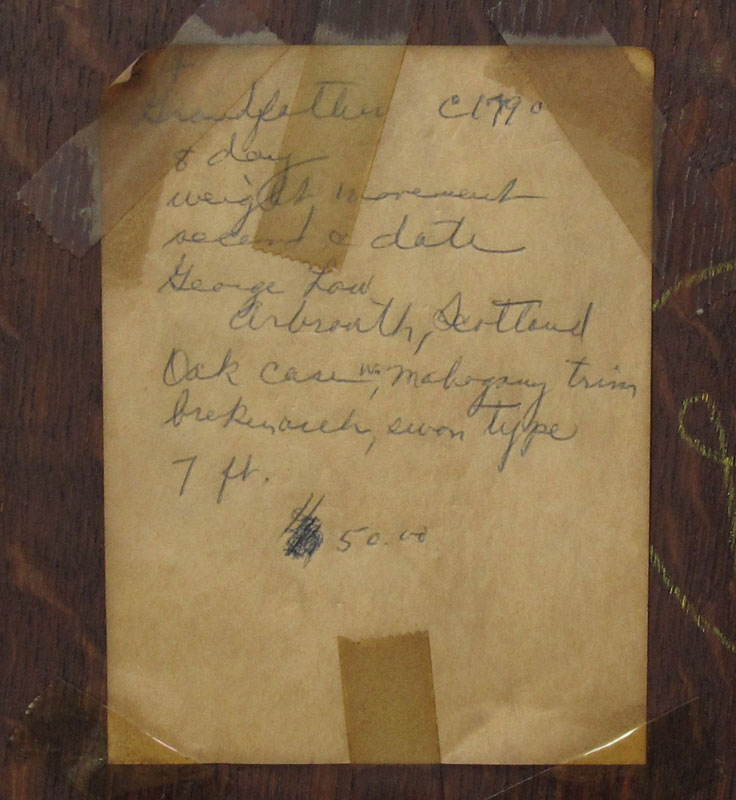 Grandfather c1790
8 day
weight movement
second & date
George Low
Arbroath, Scotland
Oak case w, Mahogany trim
brokenarch, swon type
7 ft.
50.00